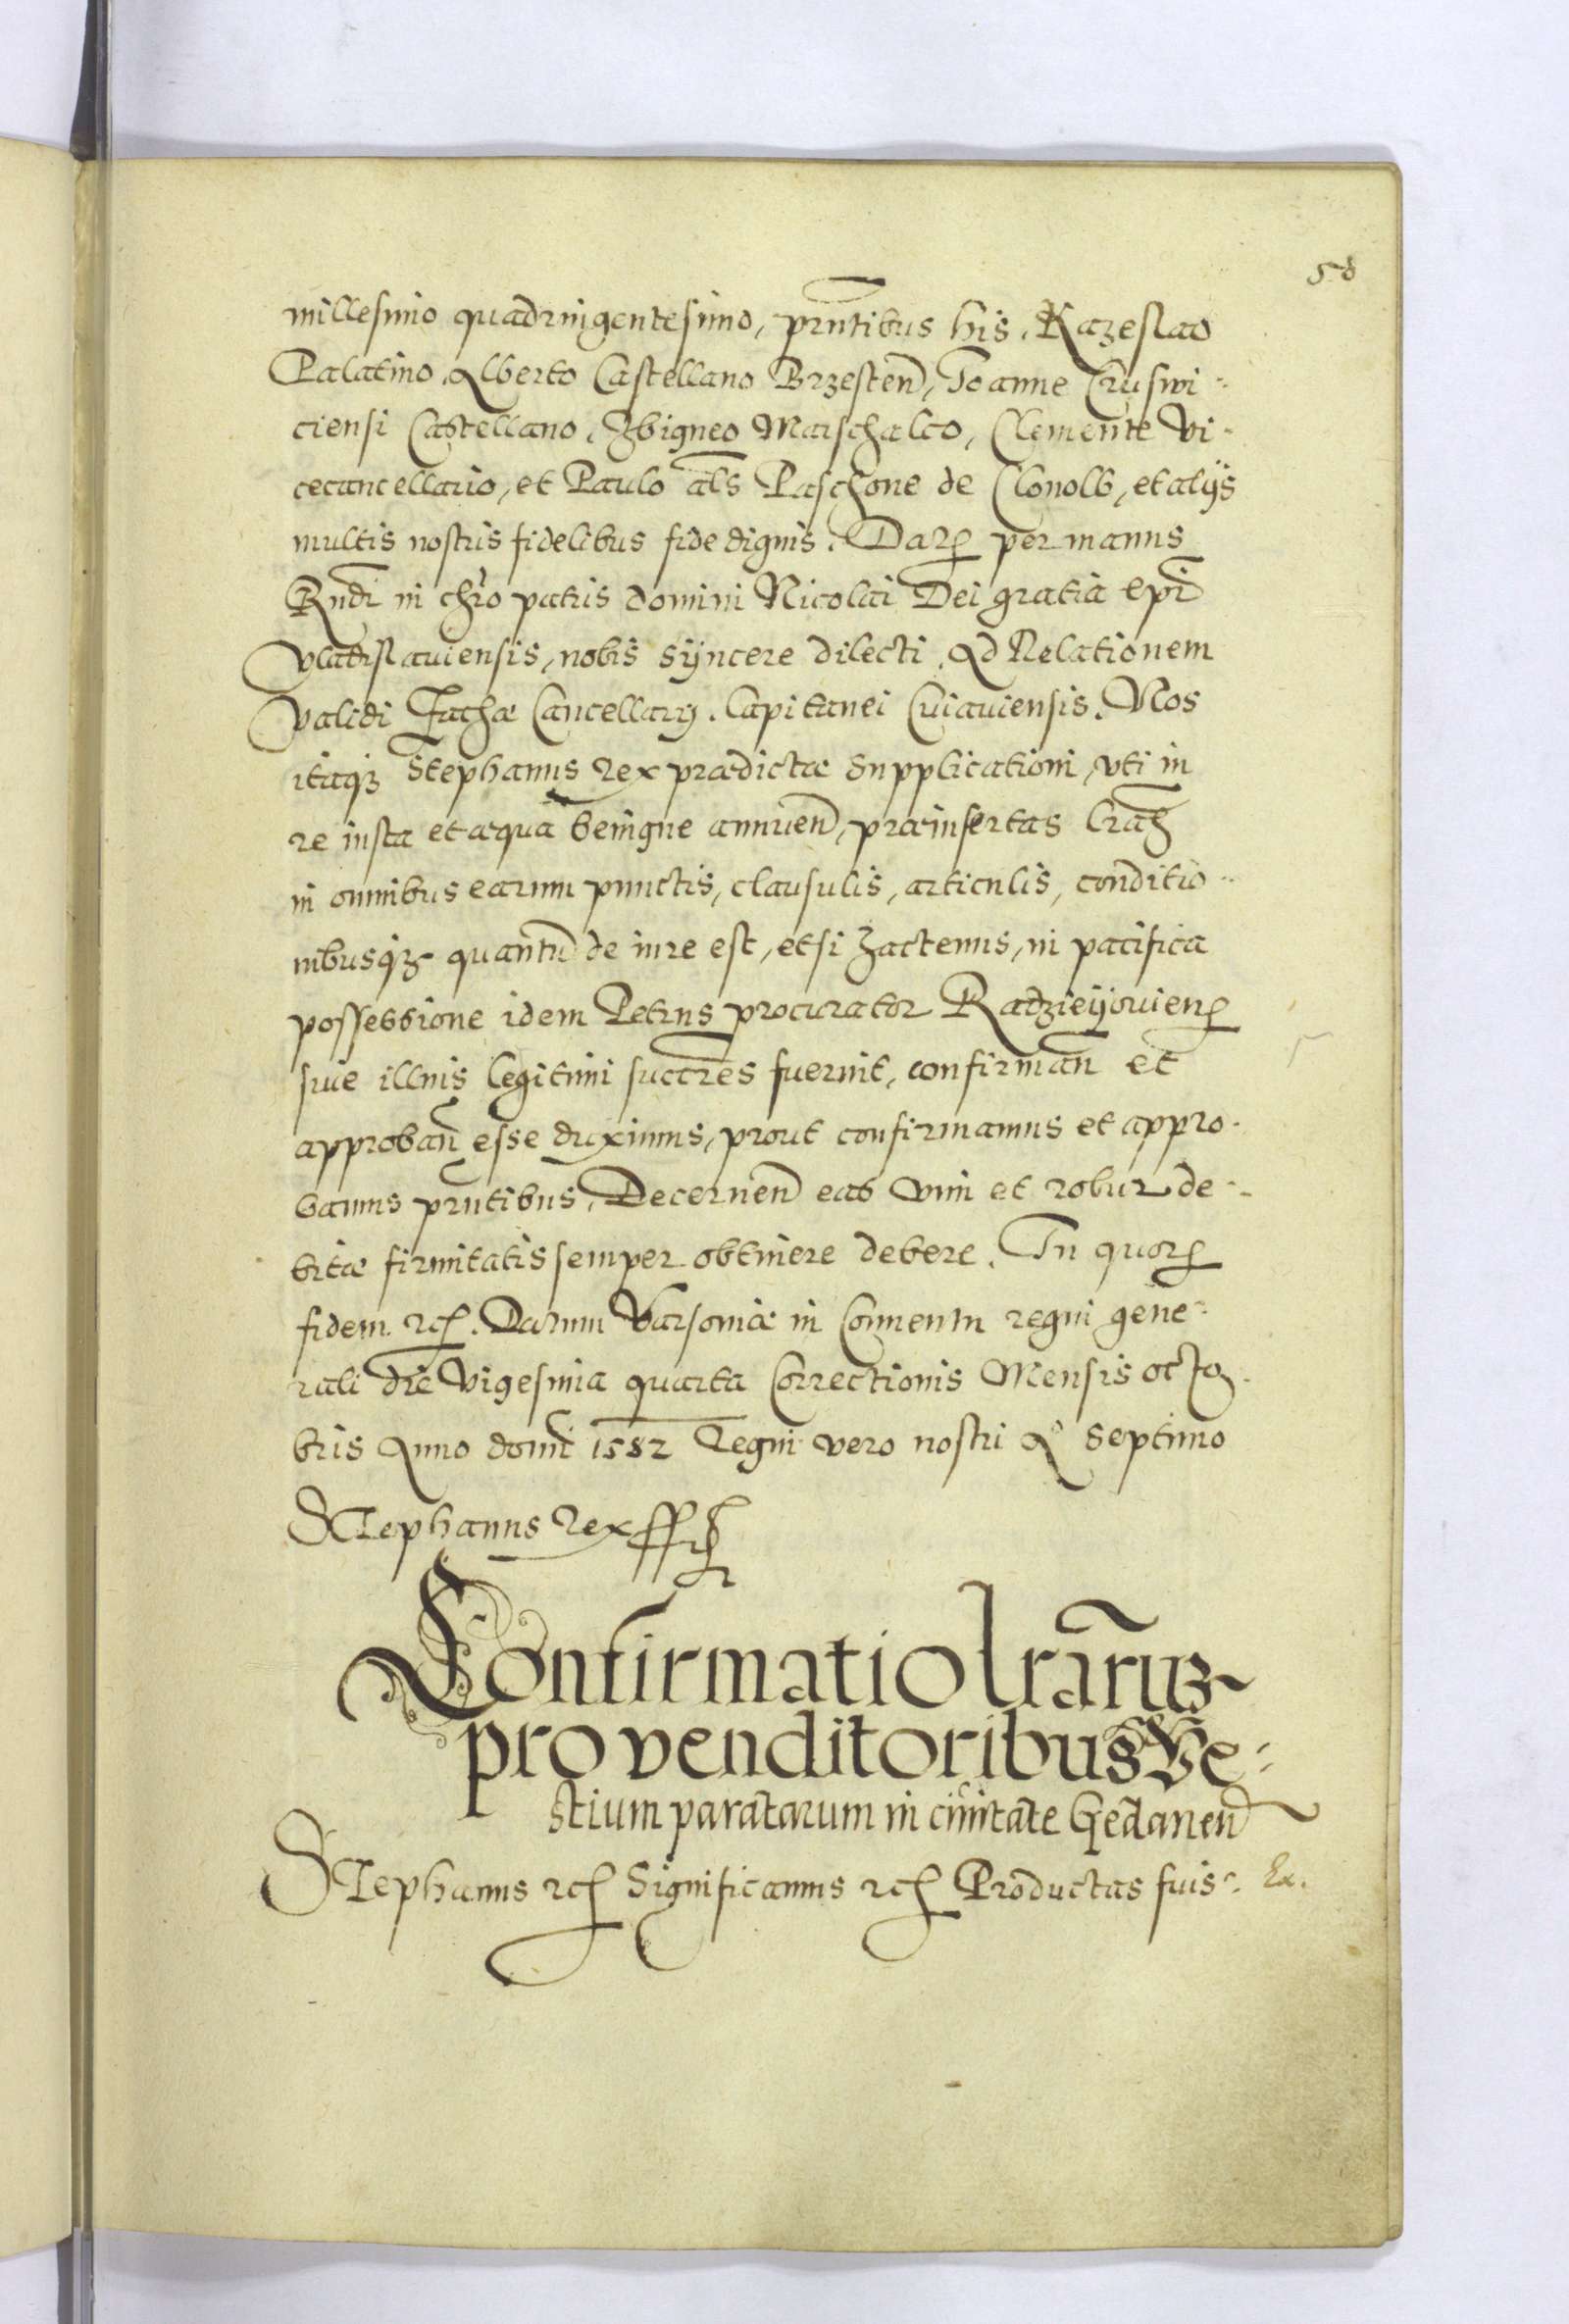 58
millesimo quadringentesimo, prntibus his, Kazeslao
Palatino, Alberto Castellano Brzesten, Joanne Cruswi-
ciensi Castellano, Zbigneo Marschalco, Clemente Vi-
cecancellario, et Paulo als Paschone de Clonolb, et alijs
multis nostris fidelibus fide dignis. Datz per manus
Rndi in chro patris domini Nicolai Dei gratia epi
Vladislauiensis, nobis syncere dilecti. Ad Relationem
Validi Jathæ Cancellarij. Capitanei Cuiauiensis. Nos
itaqz Stephanus rex prædictæ Supplicationi, vti in
re iusta et æqua benigne annuen, præinsertas lras
in omnibus earum punctis, clausulis, articulis, conditio-
nibusqz quantu de iure est, et si hactenus, in pacifica
possessione idem Petrus procurator Radzieyouien
siue illius legitimi succres fuerint, confirman et
approban esse duximus, prout confirmamus et appro-
bamus prntibus, Decernen eas vim et robur de-
bitæ firmitatis semper obtinere debere. In quor
fidem etc. Datum Varsouiæ in Conuentu regni gene-
rali die Vigesima quarta Correctionis Mensis octo-
bris Anno domi 1582 Regni vero nostri Ao Septimo
Stephanus Rex
Confirmatio lrarum
pro venditoribus Ve-
stium paratarum in ciuitate Gedanen
Stephanus etc Significamus etc Productas fuis- Ex.